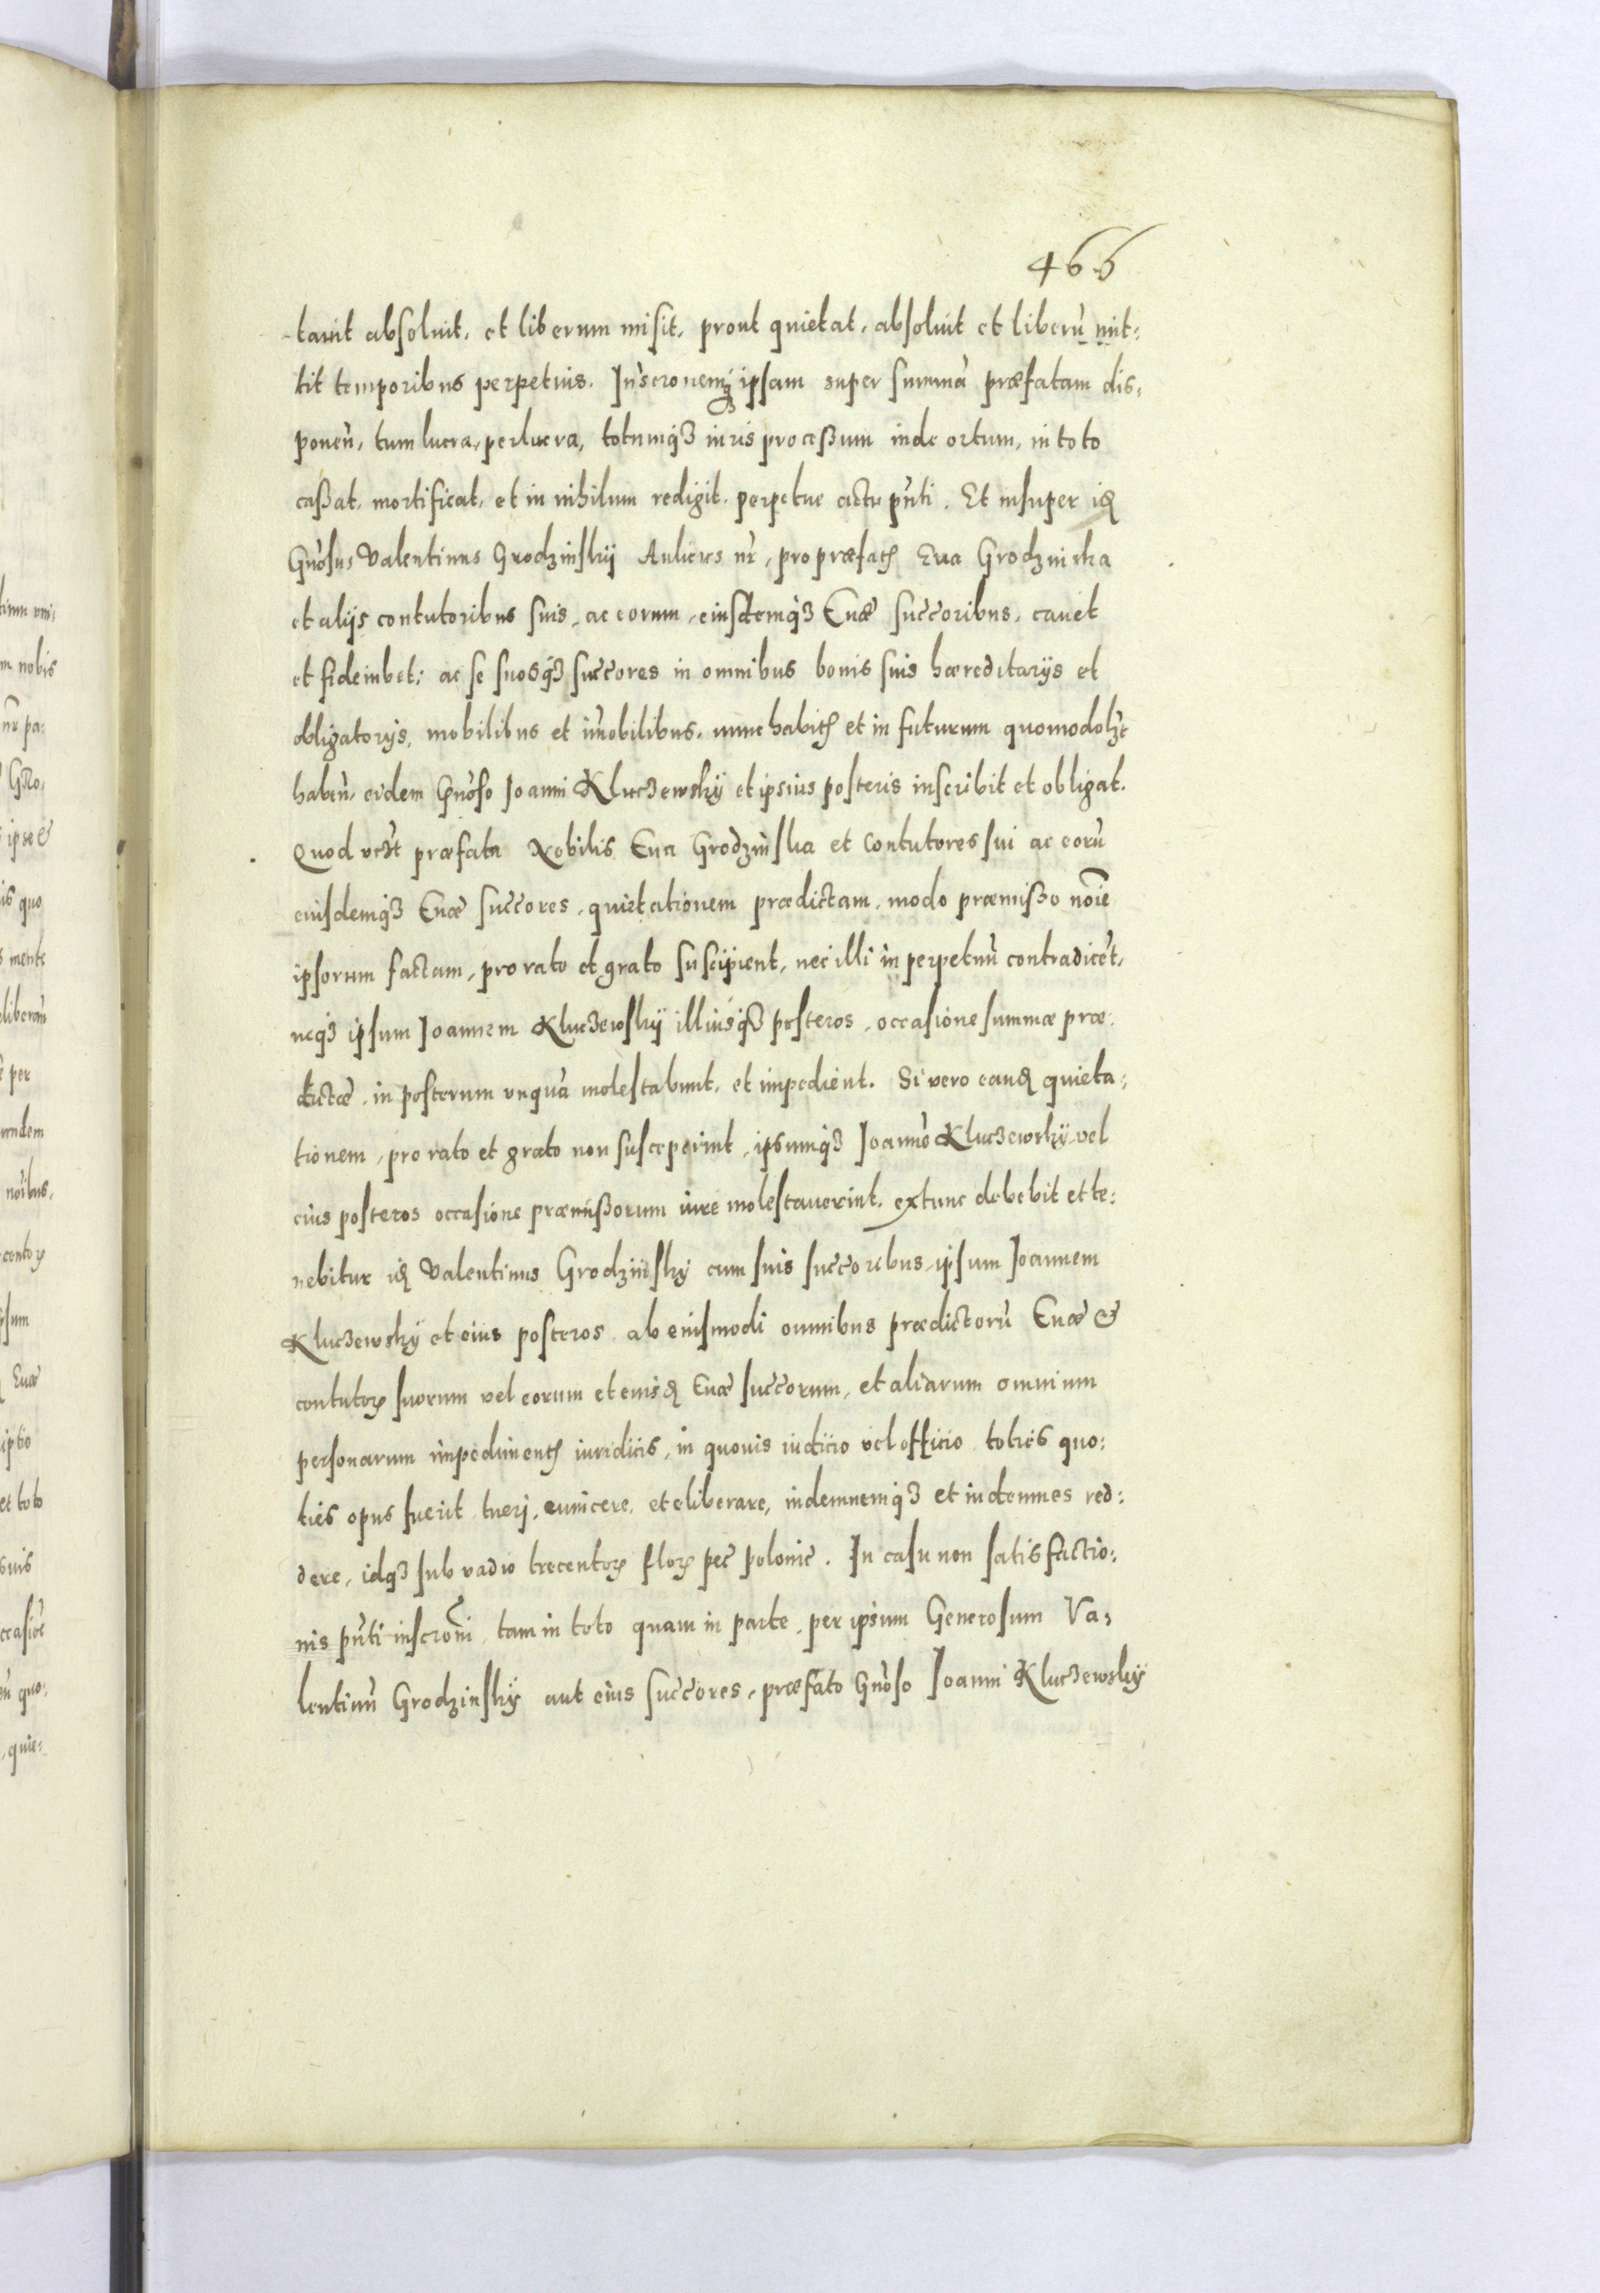 466
tauit absoluit, et liberum misit, prout quietat, absoluit et liberũ mit:
tit temporibus perpetuis. Inscronemq3 ipsam super summã præfatam dis,
ponen̄, tum lucra, perlucra, totumq3 iuris processum inde ortum, in toto
cassat, mortificat, et in nihilum redigit, perpetue actu pn̄ti. Et insuper idē
Gn̄osus Valentinus Grodzinskij Aulicus nr̄, pro præfatis Eua Grodzinska
et alijs contutoribus suis, ac eorum, eiusdemq3 Euæ succ̄oribus, cauet
et fideiubet; ac se suosq3 succ̄ores in omnibus bonis suis hæreditarijs et
obligatorijs, mobilibus et im̄obilibus, nunc habitis et in futurum quomodol3t
haben̄, eidem Gn̄oso Ioanni Kluczewsky et ipsius posteris inscribit et obligat.
Quod præfata Nobilis Eua Grodzinska et Contutores sui ac eorũ
eiusdemq3 Euæ succ̄ores, quietationem prædictam, modo præmisso noīe
ipsorum factam, pro rato et grato suscipient, nec illi in perpetuũ contradicēt,
neq3 ipsum Ioannem Kluczewskij illiusq3 posteros, occasione summæ præ:
dictæ, in posterum vnquã molestabunt, et impedient. Si vero eandē quieta:
tionem, pro rato et grato non susceperint, ipsumq3 Ioannē Kluczewsky vel
eius posteros occasione præmissorum iure molestauerint, extunc debebit et te:
nebitur idē Valentinus Grodzinsky cum suis succ̄oribus, ipsum Ioannem
Kluczewsky et eius posteros ab eiusmodi omnibus prædictorũ Euæ &
contutor̄ suorum vel eorum et eiusdē Euæ succ̄orum, et aliarum omnium
personarum impedimentis iuridicis, in quouis iudicio vel officio, toties quo:
ties opus fuerit tueri, euincere, et eliberare, indemnemq3 et indemnes red:
dere, idq3 sub vadio trecentor̄ flor̄ pec̄ polonic̄. In casu non satisfactio:
nis pn̄ti inscronī, tam in toto quam in parte, per ipsum Generosum Va,
lentinũ Grodzinsky aut eius succ̄ores, præfato Gn̄oso Ioanni Kluczewsky